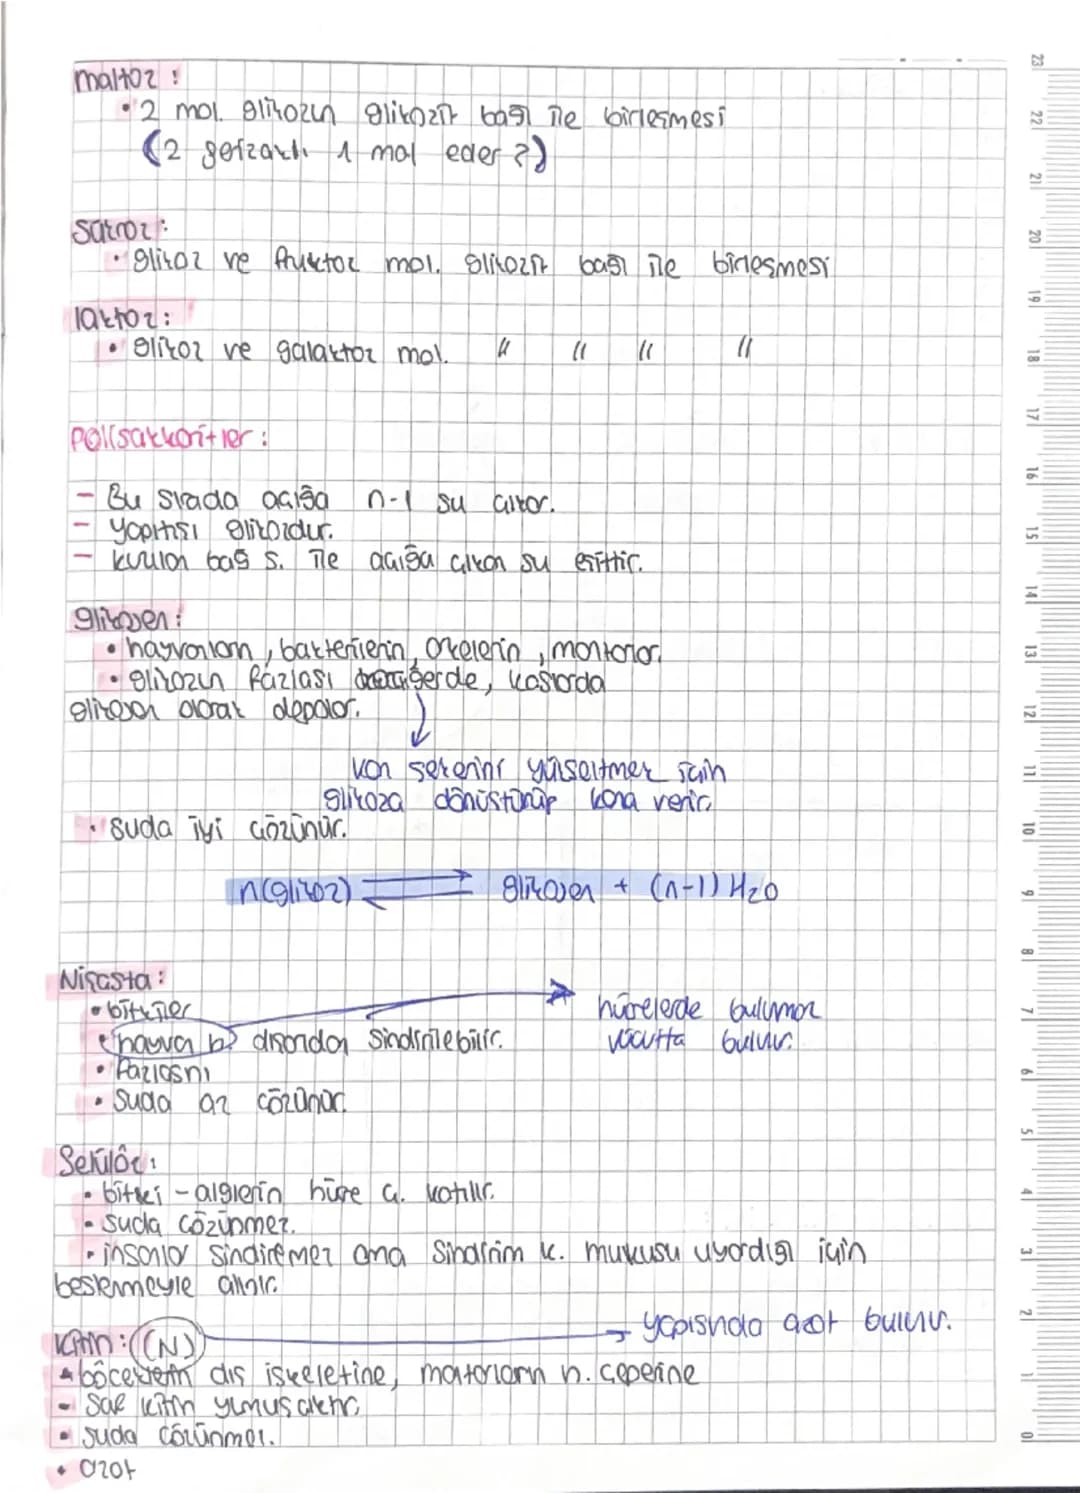 maltoz :
• 2 mol. glikozun glikozit bağı ile birleşmesi
(2 1 mol eder ?)
Sükroz :
• glikoz ve fruktoz mol. glikozit bağı ile birleşmesi
laktoz :
• glikoz ve galaktoz mol. " " " "
Polisakkaritler :
- Bu sırada açığa n-1 su çıkar.
- yapıtaşı glikozdur.
- kurulan bağ s. ile açığa çıkan su eşittir.
glikojen :
• hayvanların, bakterilerin, arkelerin, mantarlar.
• glikozun fazlası karaciğerde, kaslarda
glikojen olarak depolar.
kan şekerini yükseltmek için
glikoza dönüştürüp kana verir.
• suda iyi çözünür.
n(glikoz) ⇌ glikojen + (n-1) H2O
Nişasta :
• bitkiler
hücrelerde bulunmaz
• hayva h. dışarıdan sindirilebilir.
vücutta bulunur.
• fazlasını
• suda az çözünür.
Selüloz :
• bitki - alglerin hücre ç. katılır.
• suda çözünmez.
• insanlar sindiremez ama sindirim k. mukusu uyardığı için
beslenmeyle alınır.
kitin : (N) → yapısında azot bulunur.
• böceklerin dış iskeletine, mantarların h. çeperine
• Saf kitin yumuşaktır,
• suda çözünmez.
• azot
23
22
21
20
19
18
17
16
15
14
13
12
11
10
9
8
7
6
5
4
3
2
1
0